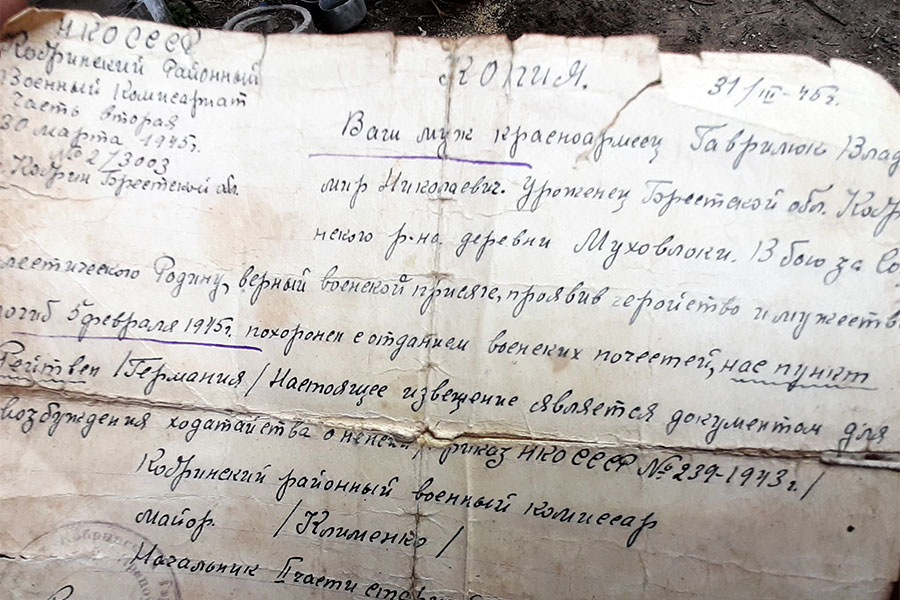 НКО СССР
Кобринский Районный
Военный Комисариат
Часть вторая
30 марта 1945г.
№ 2/3003
Кобрин Брестской обл.
Копия.
31/III-45г.
Ваш муж красноармеец Гаврилюк Влад
мир Николаевич. Уроженец Брестской обл. Кобр
нского р-на деревни Муховлоки. В бою за Со
листическую Родину, верный военской присяге, проявив геройство и мужеств
погиб 5 февраля 1945г. похоронен с отданием военских почестей, нас пункт
Рейтвен /Германия/ Настоящее извещение является документом для
возбуждения ходатайства о пенсии /приказ НКО СССР № 239-1943г./
Кобринский районный военный комиссар
майор /Клименко/
Начальник II части